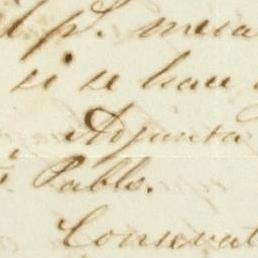 p. mera
si se hau
Adjunta
Pablo.
Conservat